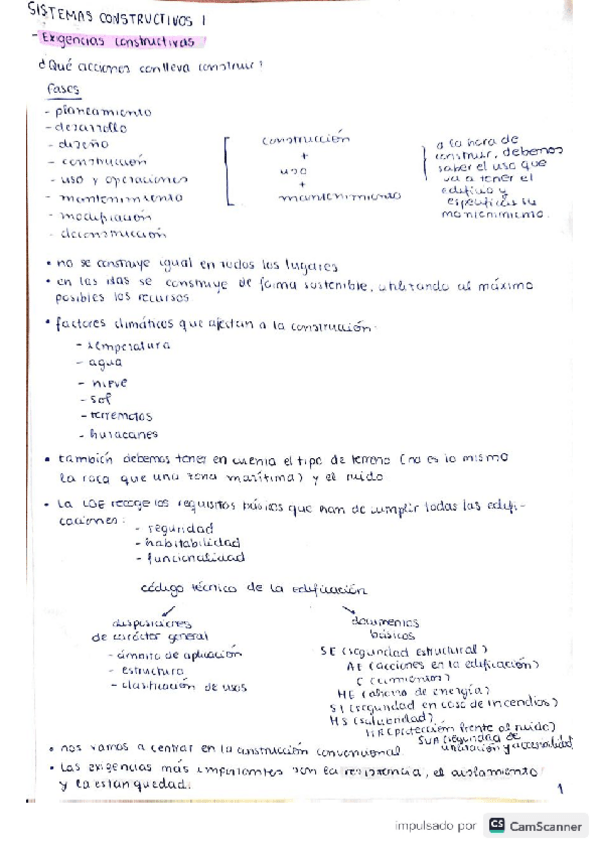 SISTEMAS CONSTRUCTIVOS 1
- Exigencias constructivas
¿Qué acciones conlleva construir?
Fases
- planeamiento
- desarrollo
- diseño
- construcción
- uso y operaciones
- mantenimiento
- modificación
- deconstrucción
construcción
+
uso
+
mantenimiento
a la hora de
construir, debemos
saber el uso que
va a tener el
edificio y
especificar su
mantenimiento.
• no se construye igual en todos los lugares
• en las islas se construye de forma sostenible, utilizando al máximo
posibles los recursos
• factores climáticos que afectan a la construcción:
- temperatura
- agua
- nieve
- sol
- terremotos
- huracanes
• también debemos tener en cuenta el tipo de terreno (no es lo mismo
la roca que una zona marítima) y el ruido
• La LOE recoge los requisitos básicos que han de cumplir todas las edifi-
caciones:
- seguridad
- habitabilidad
- funcionalidad
código técnico de la edificación
disposiciones
de carácter general
- ámbito de aplicación
- estructura
- clasificación de usos
documentos
básicos
SE (seguridad estructural)
AE (acciones en la edificación)
C (cimientos)
HE (ahorro de energía)
SI (seguridad en caso de incendios)
HS (salubridad)
HR (protección frente al ruido)
SUA (seguridad de
utilización y accesibilidad)
• nos vamos a centrar en la construcción convencional.
• Las exigencias más importantes son la resistencia, el aislamiento
y la estanquedad.
1
impulsado por CS CamScanner